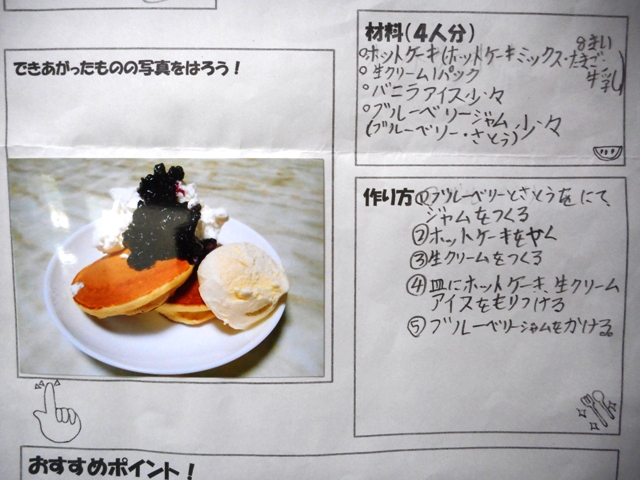 できあがったものの写真をはろう！
材料(4人分)
○ホットケーキ(ホットケーキミックス・たまご・牛乳) 8まい
○生クリーム1パック
○バニラアイス少々
○ブルーベリージャム少々
(ブルーベリー・さとう)
作り方①ブルーベリーとさとうをにて、
ジャムをつくる
②ホットケーキをやく
③生クリームをつくる
④皿にホットケーキ、生クリーム
アイスをもりつける
⑤ブルーベリージャムをかける。
おすすめポイント！